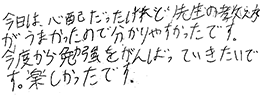 今日は、心配だったけれど、先生の教え方
がうまかったので分かりやすかったです。
今度から勉強をがんばっていきたいで
す。楽しかったです。